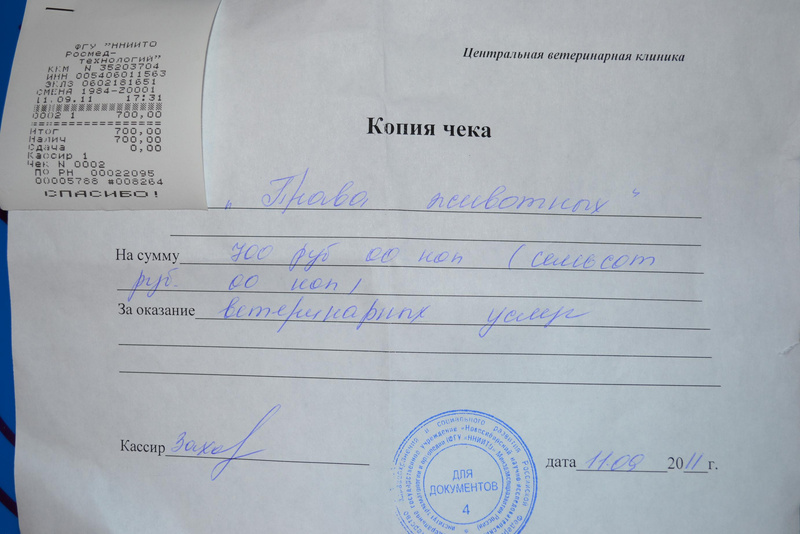 ФГУ "ННИИТО
Росмед-
технологий"
ККМ N 35203704
ИНН 005406011563
ЭКЛЗ 0602181651
СМЕНА 1984-Z0001
11.09.11 17:31
0002 1 700,00
Итог 700,00
Налич 700,00
Сдача 0,00
Кассир 1
Чек N 0002
ПО РН 00022095
00005788 #008264
СПАСИБО!
Центральная ветеринарная клиника
Копия чека
„Права животных"
На сумму 700 руб 00 коп (семьсот
руб. 00 коп)
За оказание ветеринарных услуг
Кассир
дата 11.09 2011г.
ДЛЯ
ДОКУМЕНТОВ
4